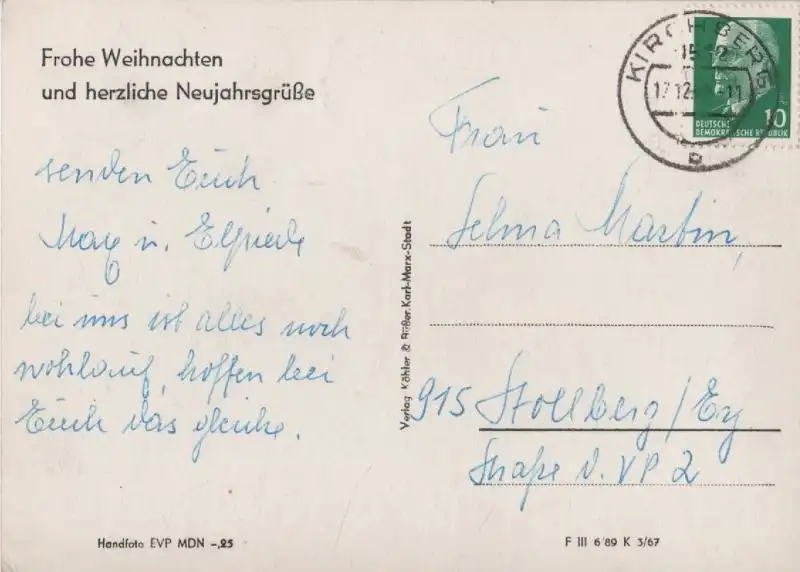 Frohe Weihnachten
und herzliche Neujahrsgrüße
senden Euch
Max u. Elfriede
bei uns ist alles noch
wohlauf, hoffen bei
Euch das gleiche.
Handfoto EVP MDN -,25
Verlag Köhler & Rüßer, Karl-Marx-Stadt
KIRCHBERG
17.12. -11
b
DEUTSCHE
DEMOKRATISCHE REPUBLIK
10
Frau
Selma Martin,
915 Stollberg/Erz
Straße d. VP 2
F III 6 89 K 3/67